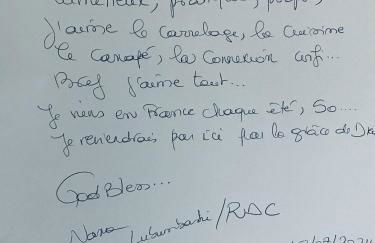 J'aime le carrelage, la cuisine
le canapé, la connexion wifi...
Bref j'aime tout...
Je viens en France chaque été, So....
Je reviendrais par ici par la grâce de
God Bless...
Nana Lubumbashi/RDC